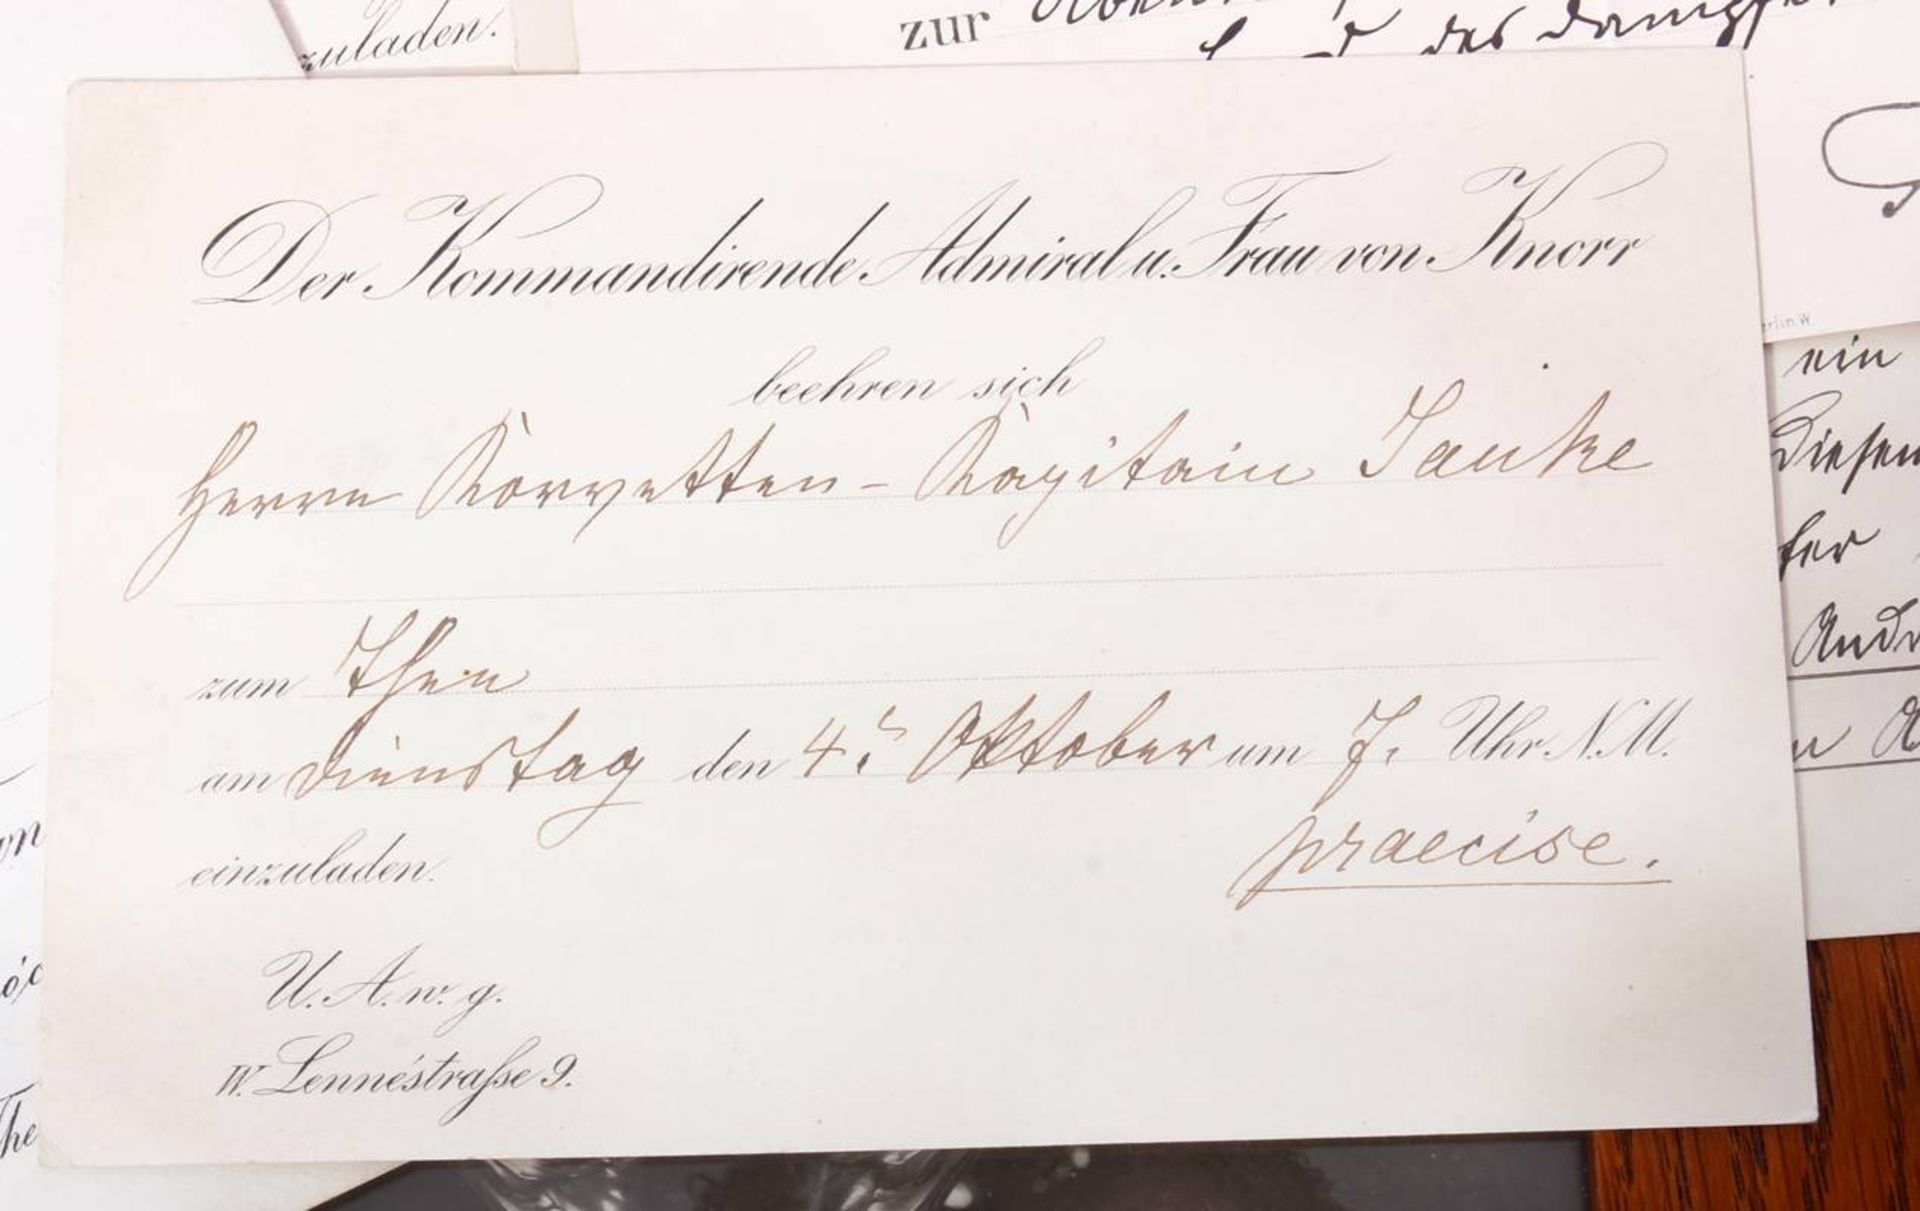 zuladen.
zur
des Dampfe
Der Kommandirende Admiral u. Frau von Knorr
beehren sich
Herrn Korvetten-Kapitain Janke
zum Thee
am Dienstag den 4. Oktober um 7. Uhr N.M.
praecise.
einzuladen.
U. A. w. g.
W. Lennéstraße 9.
erlin W.
ein
Diesen